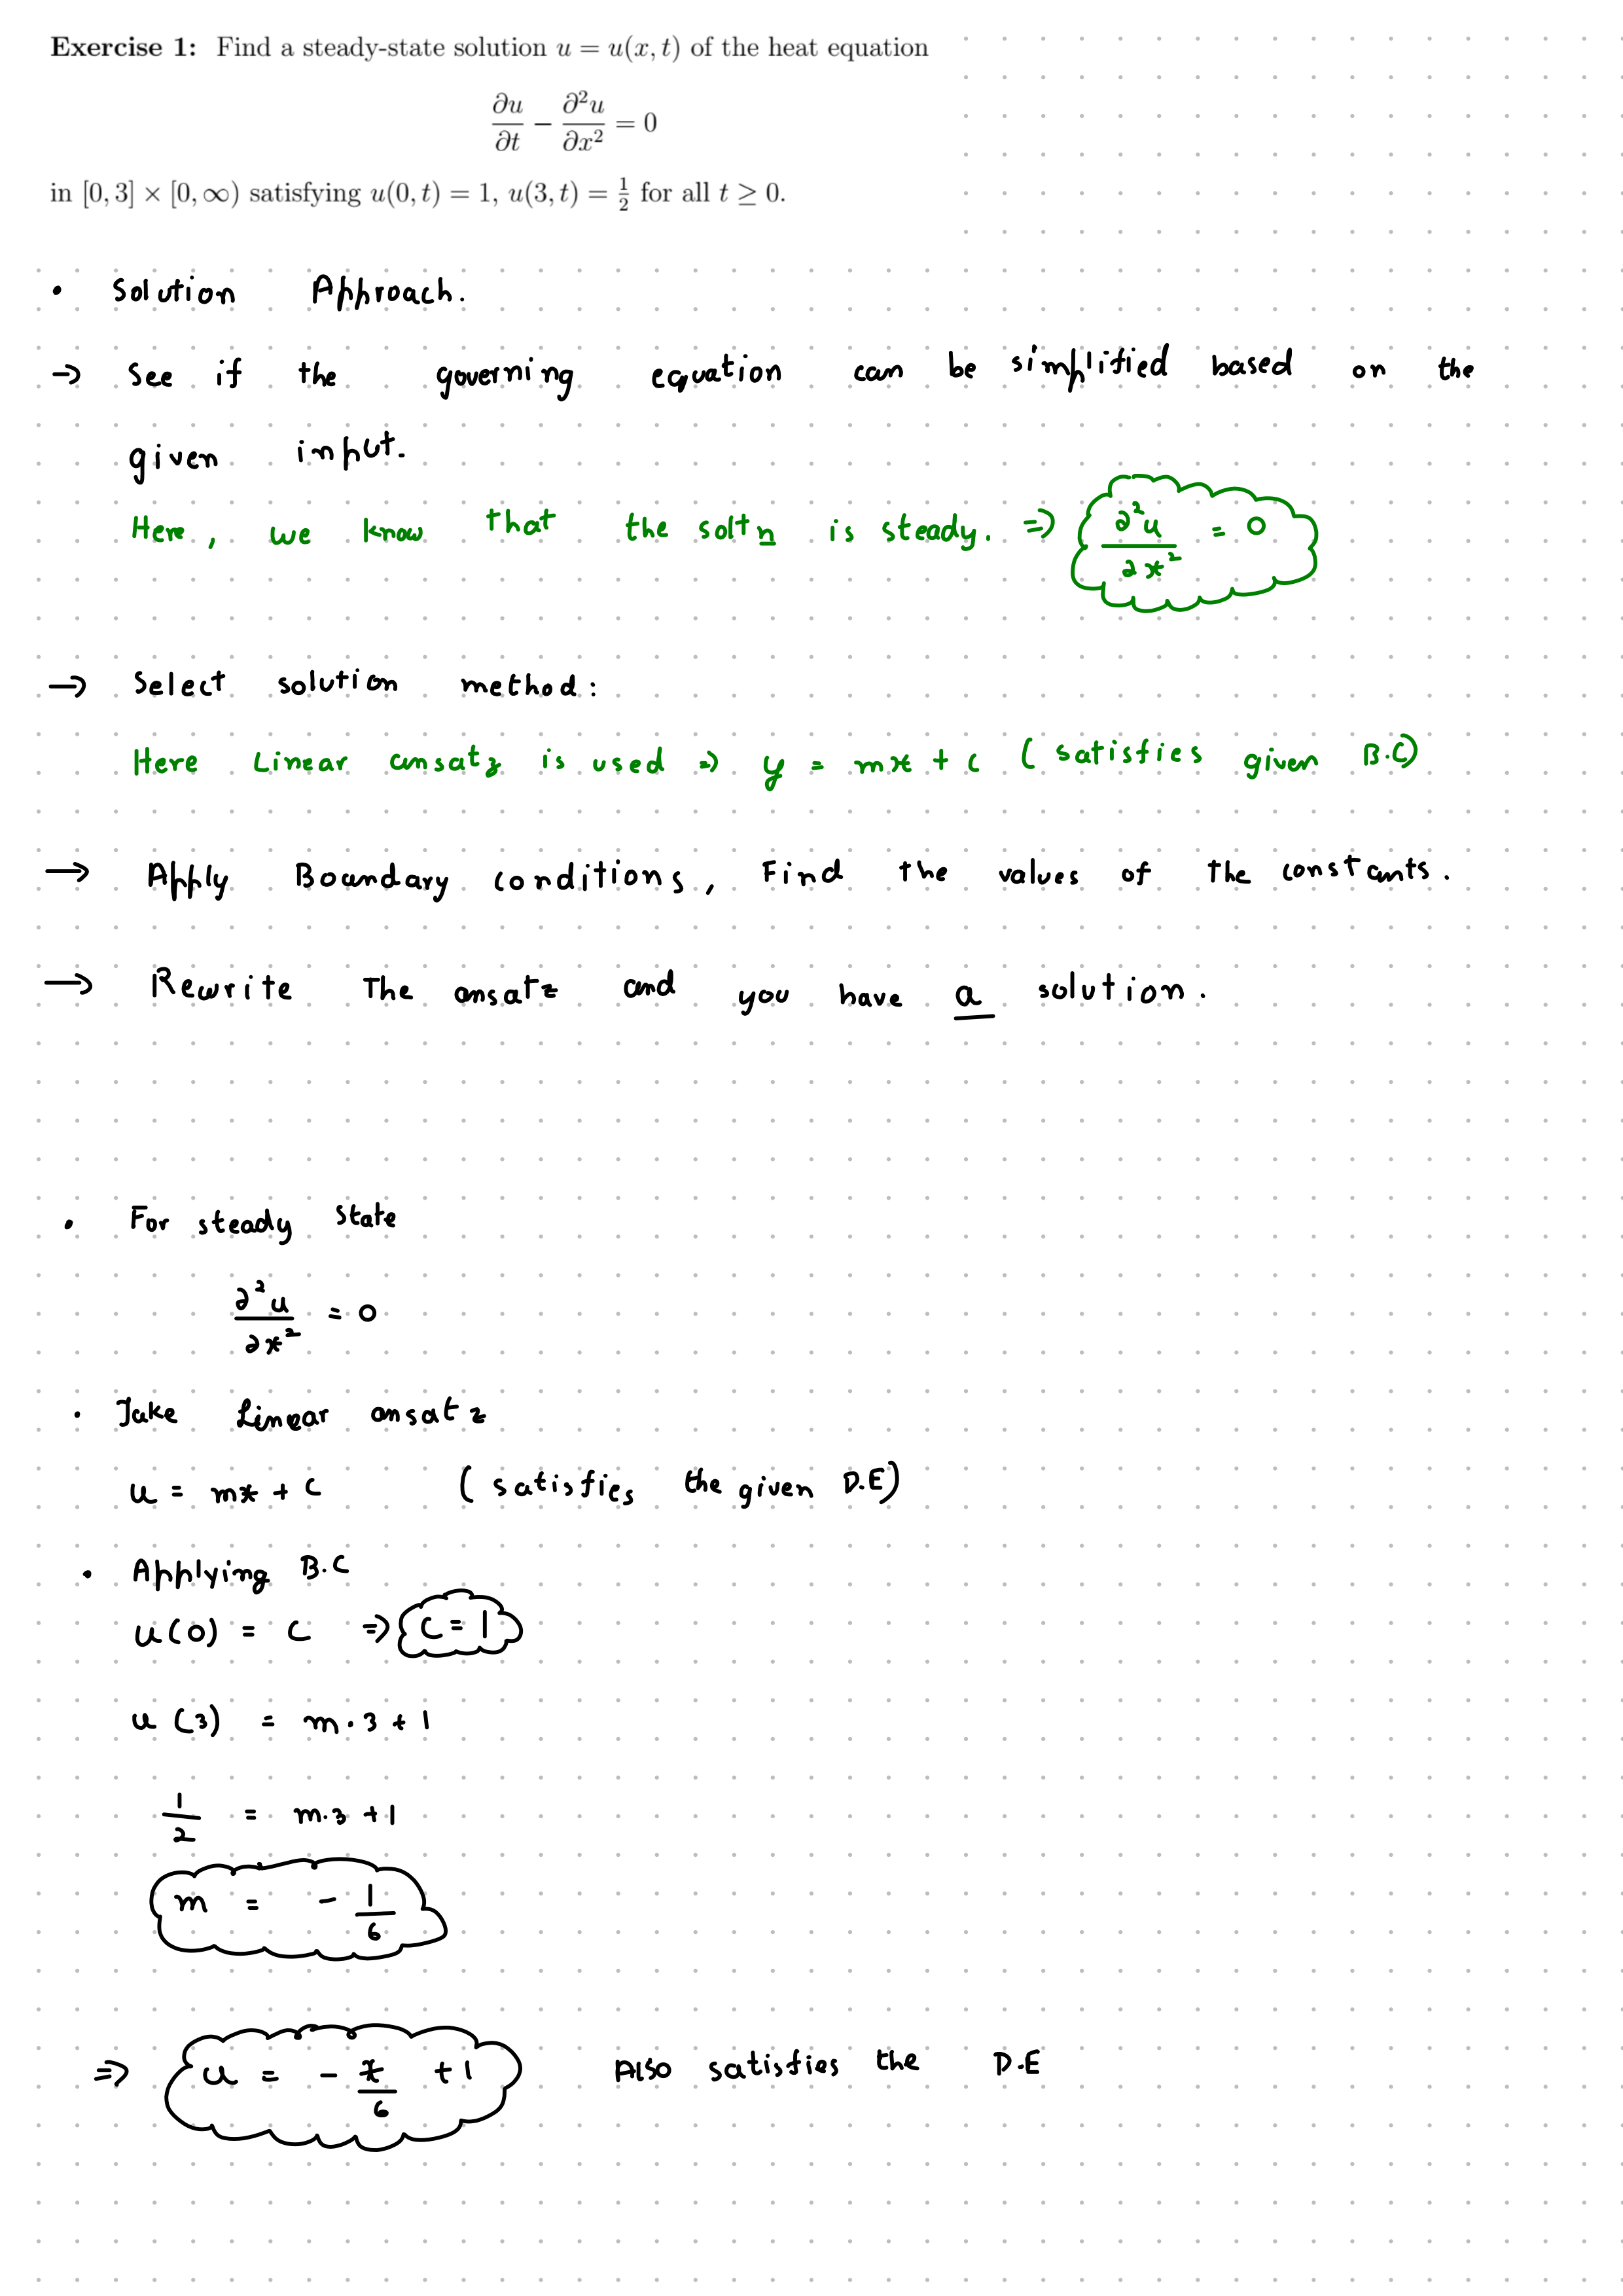 Exercise 1: Find a steady-state solution u = u(x, t) of the heat equation
∂u/∂t − ∂²u/∂x² = 0
in [0, 3] × [0, ∞) satisfying u(0, t) = 1, u(3, t) = 1/2 for all t ≥ 0.
• Solution Approach.
→ See if the governing equation can be simplified based on the
given input.
Here, we know that the soltn is steady. ⇒ ∂²u/∂x² = 0
→ Select solution method:
Here Linear ansatz is used ⇒ y = mx + c (satisfies given B.C)
→ Apply Boundary conditions, Find the values of the constants.
→ Rewrite The ansatz and you have a solution.
• For steady state
∂²u/∂x² = 0
• Take Linear ansatz
u = mx + c (satisfies the given D.E)
• Applying B.C
u(0) = c ⇒ c = 1
u(3) = m·3 + 1
1/2 = m·3 + 1
m = - 1/6
⇒ u = - x/6 + 1 Also satisfies the D.E